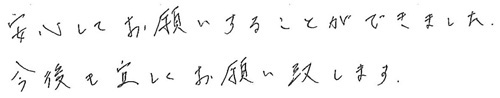 安心してお願いすることができました.
今後も宜しくお願い致します.